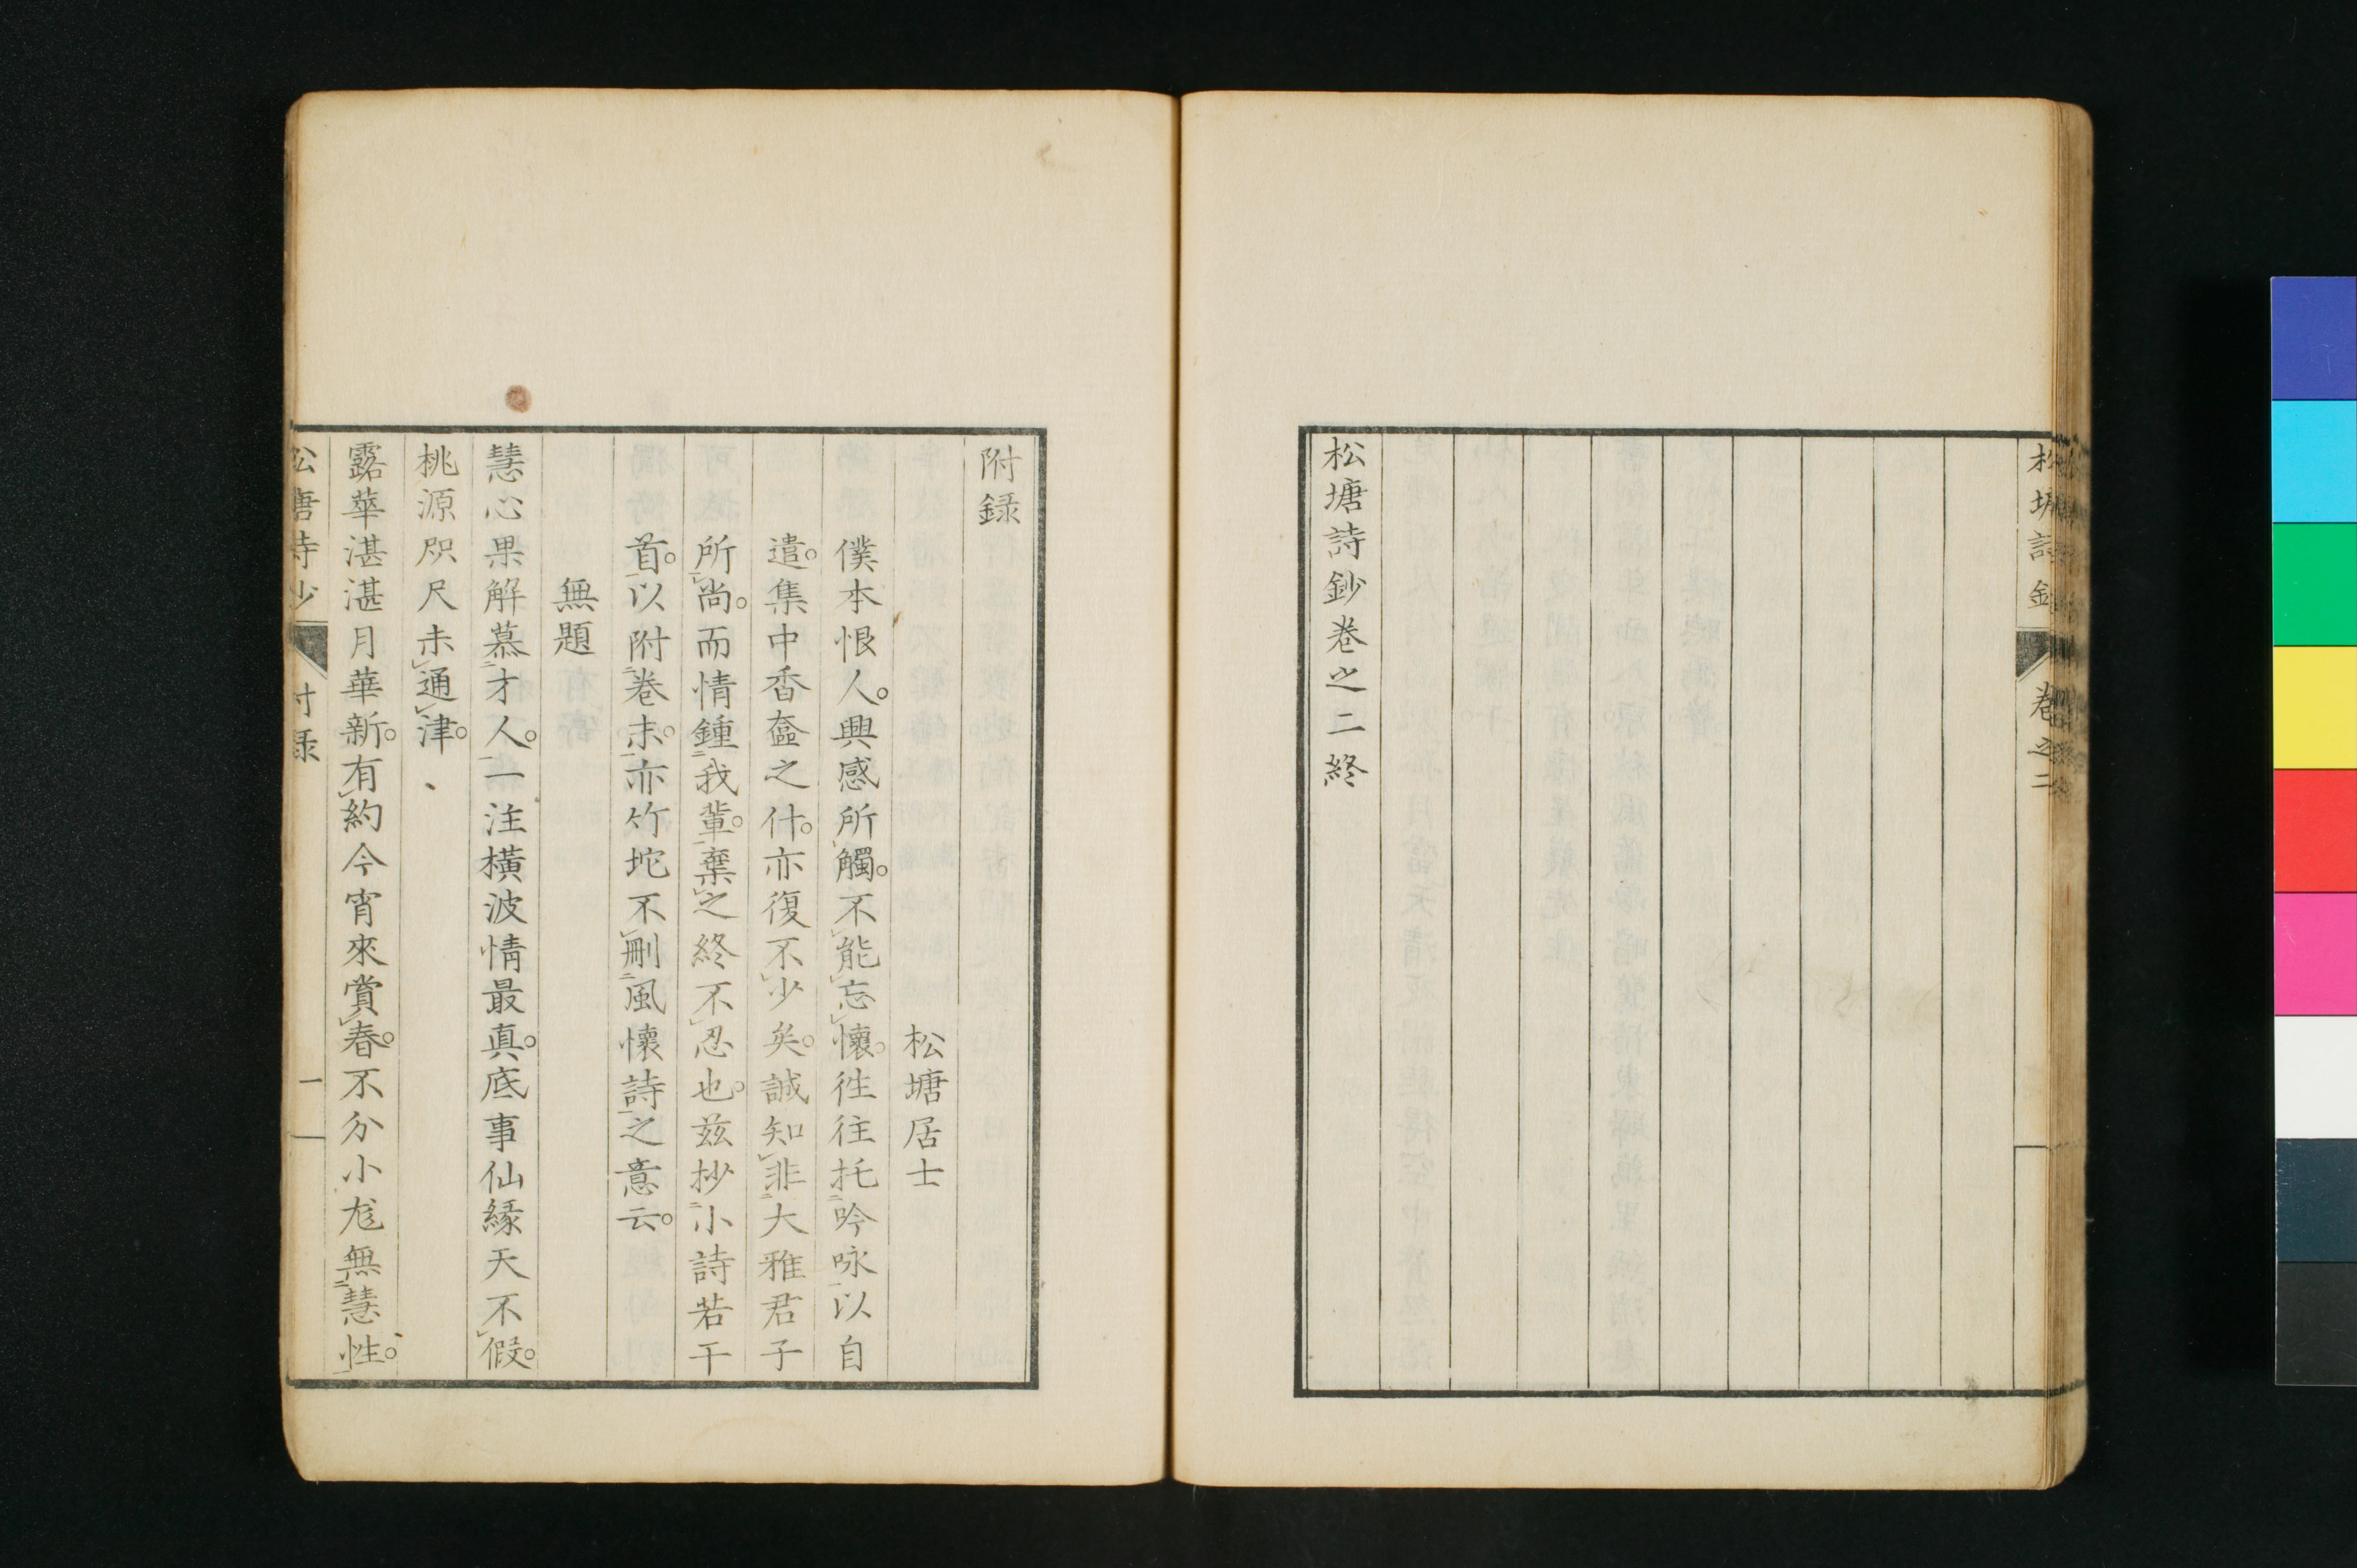 松塘詩鈔 卷之二
松塘詩鈔卷之二終
附録
松塘居士
僕本恨人。興感所觸。不能忘懷。徃往托吟咏以自
遣。集中香奩之什。亦復不少矣。誠知非大雅君子
所尚。而情鍾我輩。棄之終不忍也。茲抄小詩若干
首。以附卷末。亦竹坨不刪風懷詩之意云。
無題
慧心果解慕才人。一注橫波情最真。底事仙緣天不假。
桃源咫尺未通津。
露華湛湛月華新。有約今宵來賞春。不分小尨無慧性。
松塘詩鈔 附録 一